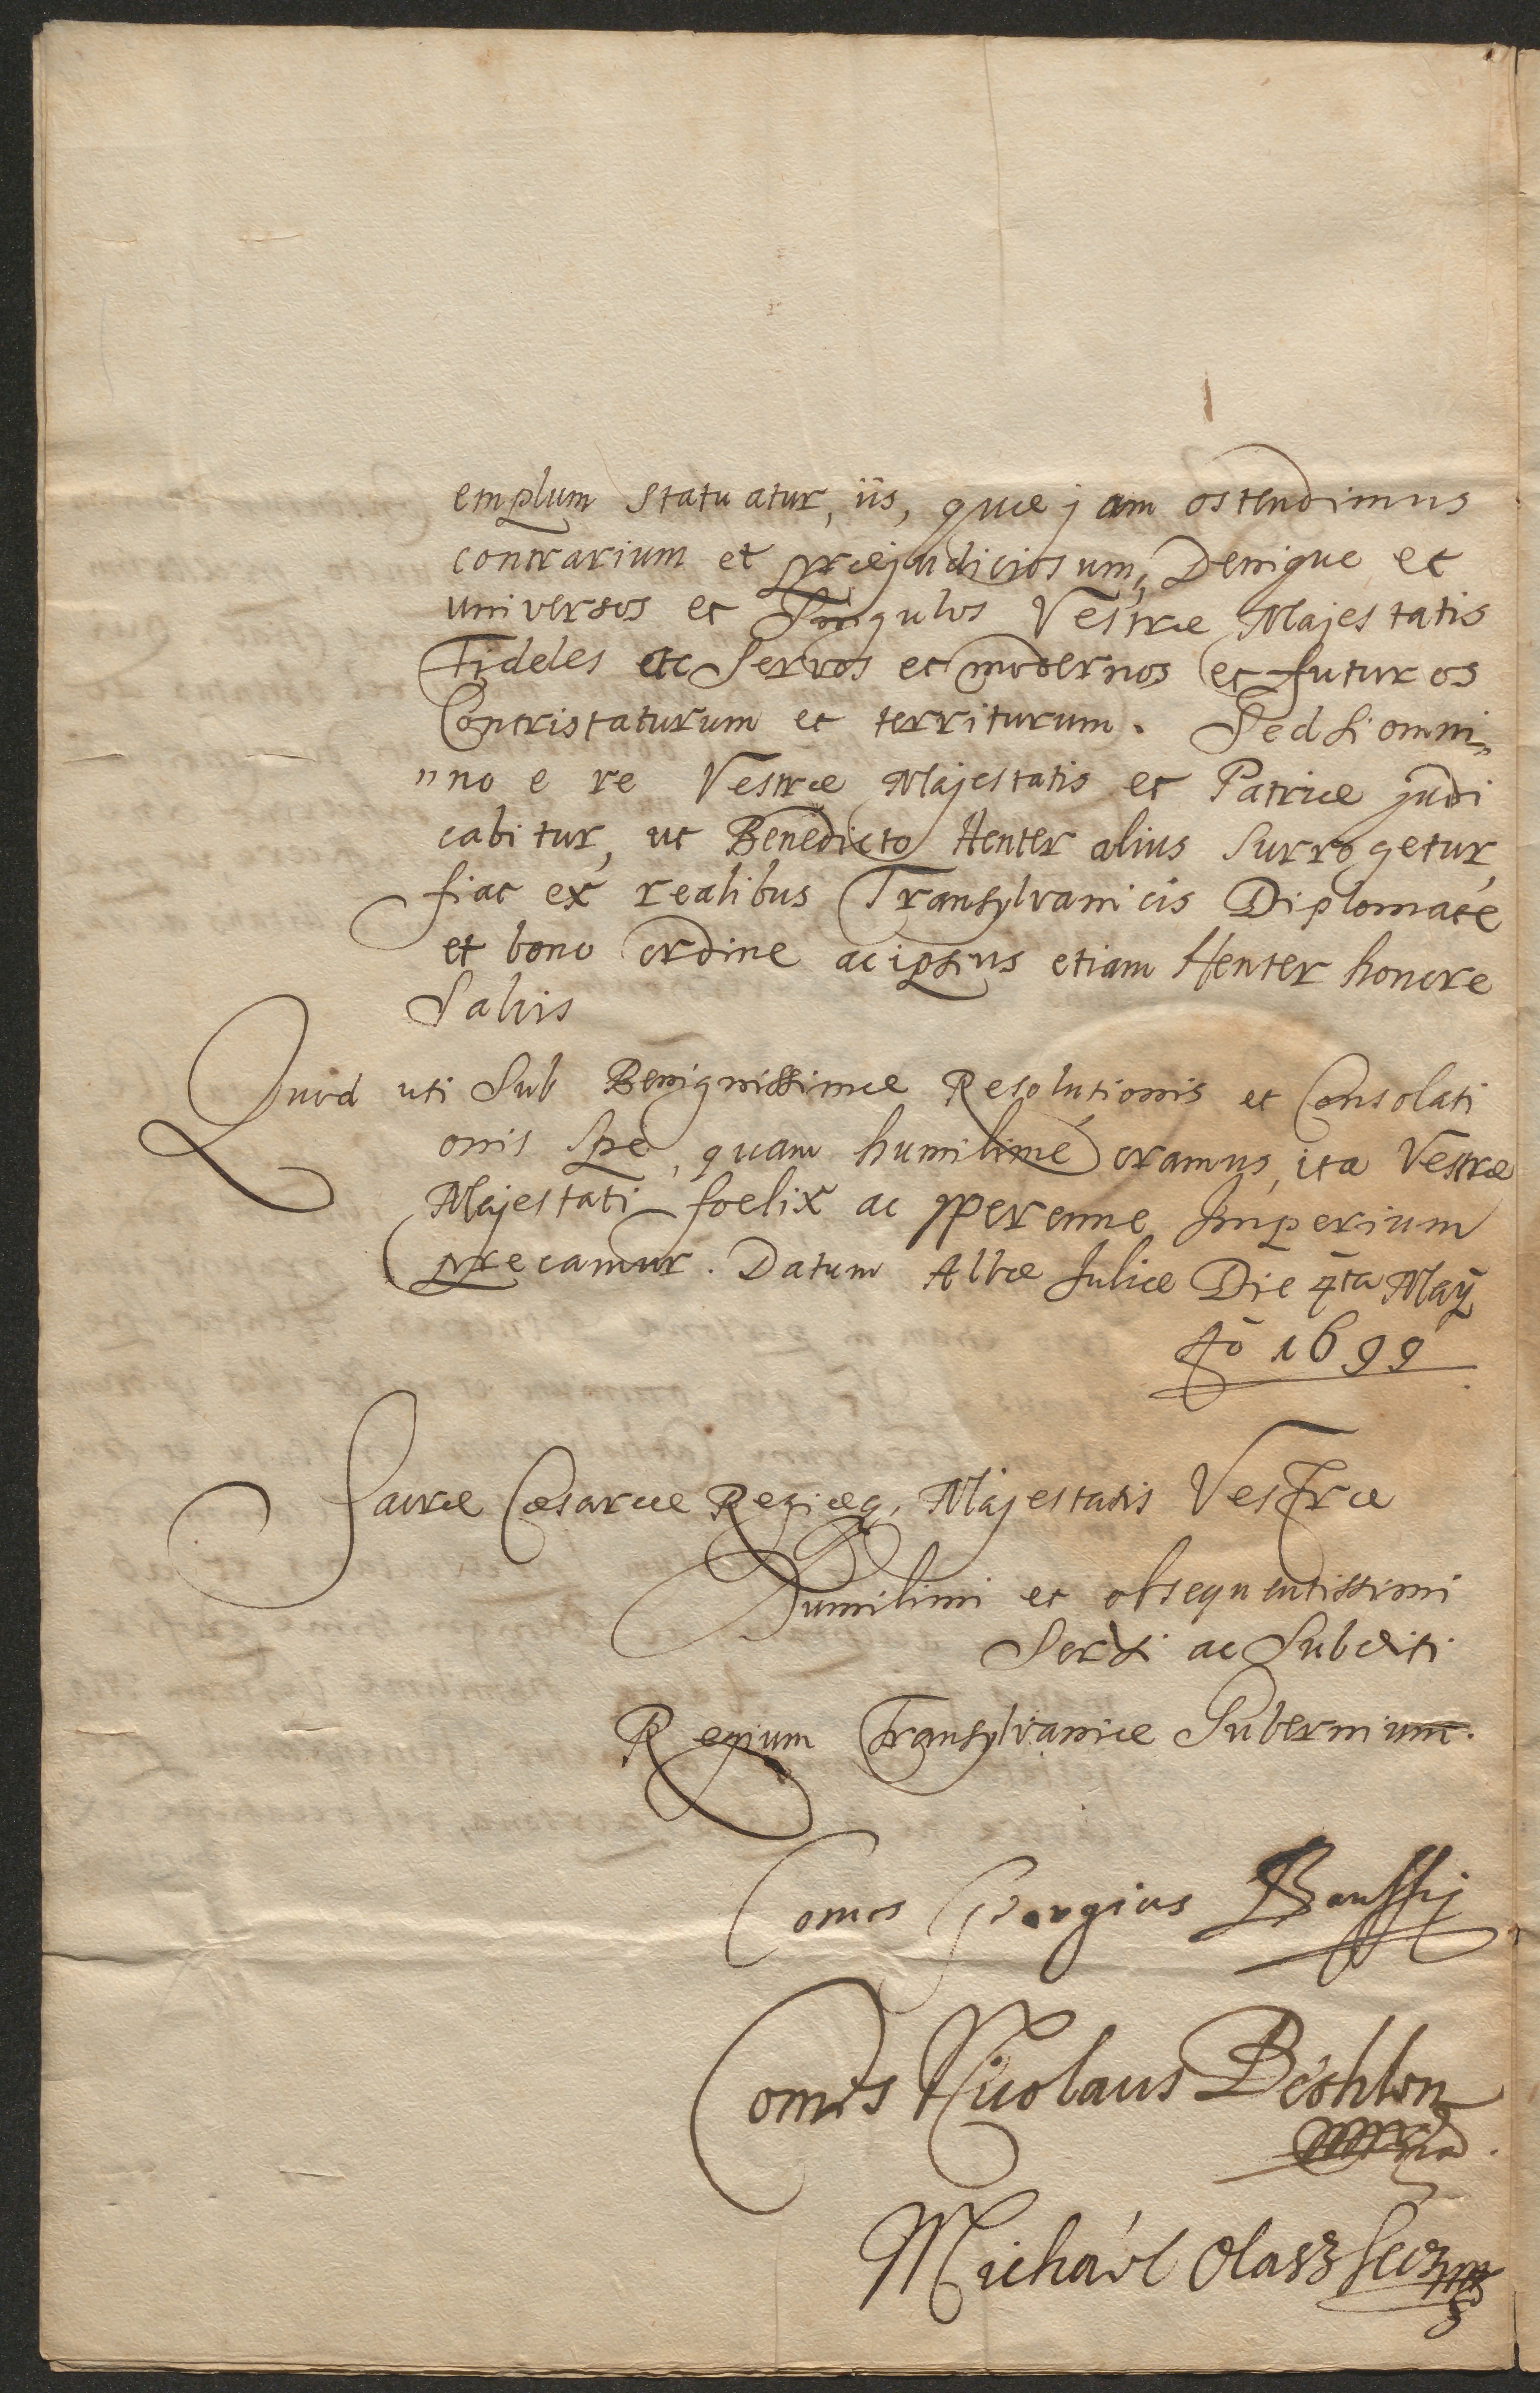 emplum statuatur, iis, quæ jam ostendimus
contrarium et præjudiciosum, Denique et
universos et Singulos Vestræ Majestatis
Fideles ac Servos et modernos et futuros
Contristaturum et territurum. Sed si omni„
„no e re Vestræ Majestatis et Patriæ judi
cabitur, ut Benedicto Henter alius surrogetur,
fiat ex realibus Transylvanicis Diplomate
et bono ordine ac ipsius etiam Henter honore
Salvis
Quod uti Sub Benignissimæ Resolutionis et Consolati
onis Spe, quam humilime oramus, ita Vestræ
Majestati foelix ac perenne Imperium
precamur. Datum Albæ Juliæ Die 4ta Maÿ
Aō 1699
Sacræ Cæsareæ Regiæq, Majestatis Vestræ
Humilimi et obsequentissimi
Servi ac Subditi
Regium Transylvaniæ Gubernium.
Comes Georgius Banffij
Comes Nicolaus Bethlen
Michaël Olasz